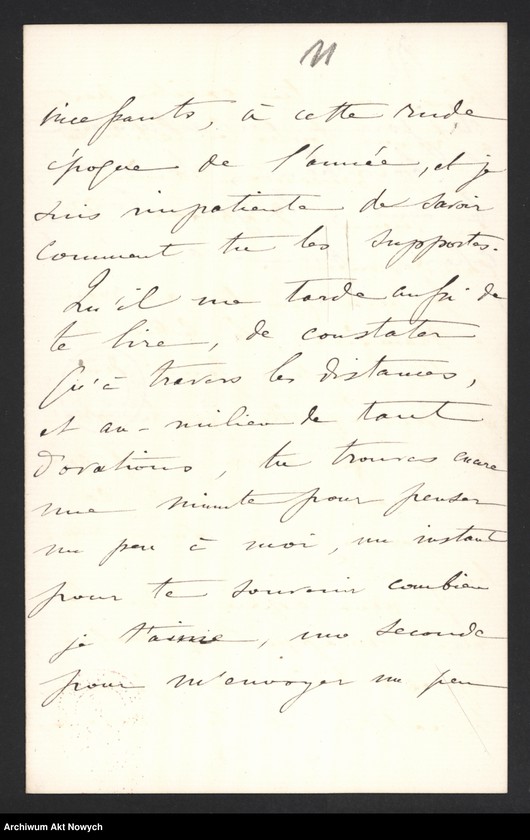 11
incessants, à cette rude
époque de l'année, et je
suis impatiente de savoir
comment tu les supportes.
Qu'il me tarde aussi de
te lire, de constater
Qu'à travers les distances,
et au-milieu de tant
D'ovations, tu trouves encore
une minute pour penser
un peu à moi, un instant
pour te souvenir combien
je t'aime, une seconde
pour m'envoyer un peu
Archiwum Akt Nowych